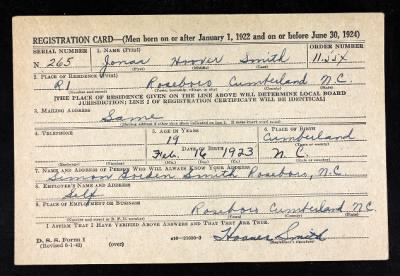 REGISTRATION CARD—(Men born on or after January 1, 1922 and on or before June 30, 1924)
SERIAL NUMBER 1. NAME (Print) ORDER NUMBER
N. 265 Jonas Hoover Smith 11.554
(First) (Middle) (Last)
2. PLACE OF RESIDENCE (Print)
R1 Roseboro Cumberland N.C.
(Number and street) (Town, township, village, or city) (County) (State)
[THE PLACE OF RESIDENCE GIVEN ON THE LINE ABOVE WILL DETERMINE LOCAL BOARD
JURISDICTION; LINE 2 OF REGISTRATION CERTIFICATE WILL BE IDENTICAL]
3. MAILING ADDRESS
Same
(Mailing address if other than place indicated on line 2. If same insert word same)
4. TELEPHONE 5. AGE IN YEARS 6. PLACE OF BIRTH
19 Cumberland
DATE OF BIRTH (Town or county)
Feb. 16 1923 N.C.
(Exchange) (Number) (Mo.) (Day) (Yr.) (State or country)
7. NAME AND ADDRESS OF PERSON WHO WILL ALWAYS KNOW YOUR ADDRESS
Simon Smith Roseboro, N.C.
8. EMPLOYER'S NAME AND ADDRESS
Self
9. PLACE OF EMPLOYMENT OR BUSINESS
Roseboro Cumberland N.C.
(Number and street or R. F. D. number) (Town) (County) (State)
I AFFIRM THAT I HAVE VERIFIED ABOVE ANSWERS AND THAT THEY ARE TRUE.
D. S. S. Form 1
(Revised 6-1-42) (over) Hoover Smith
(Registrant's signature)